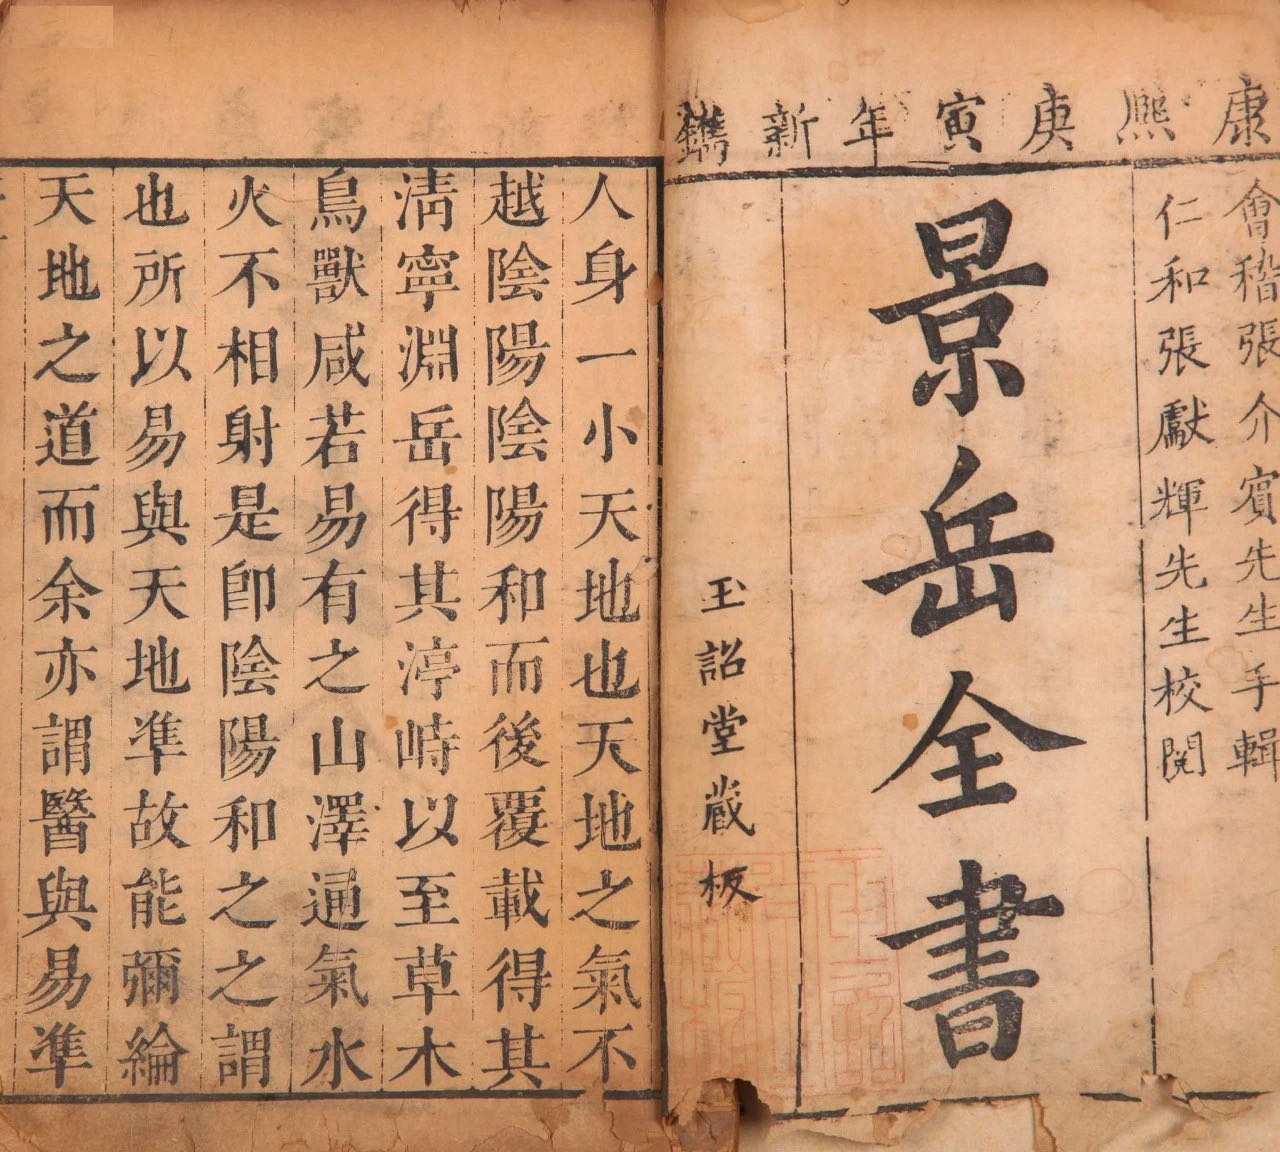 康熙庚寅年新鐫
會稽張介賓先生手輯
仁和張獻輝先生校閱
景岳全書
玉詔堂藏板
人身一小天地也天地之氣不
越陰陽陰陽和而後覆載得其
淸寧淵岳得其渟峙以至草木
鳥獸咸若易有之山澤通氣水
火不相射是卽陰陽和之之謂
也所以易與天地準故能彌綸
天地之道而余亦謂醫與易準